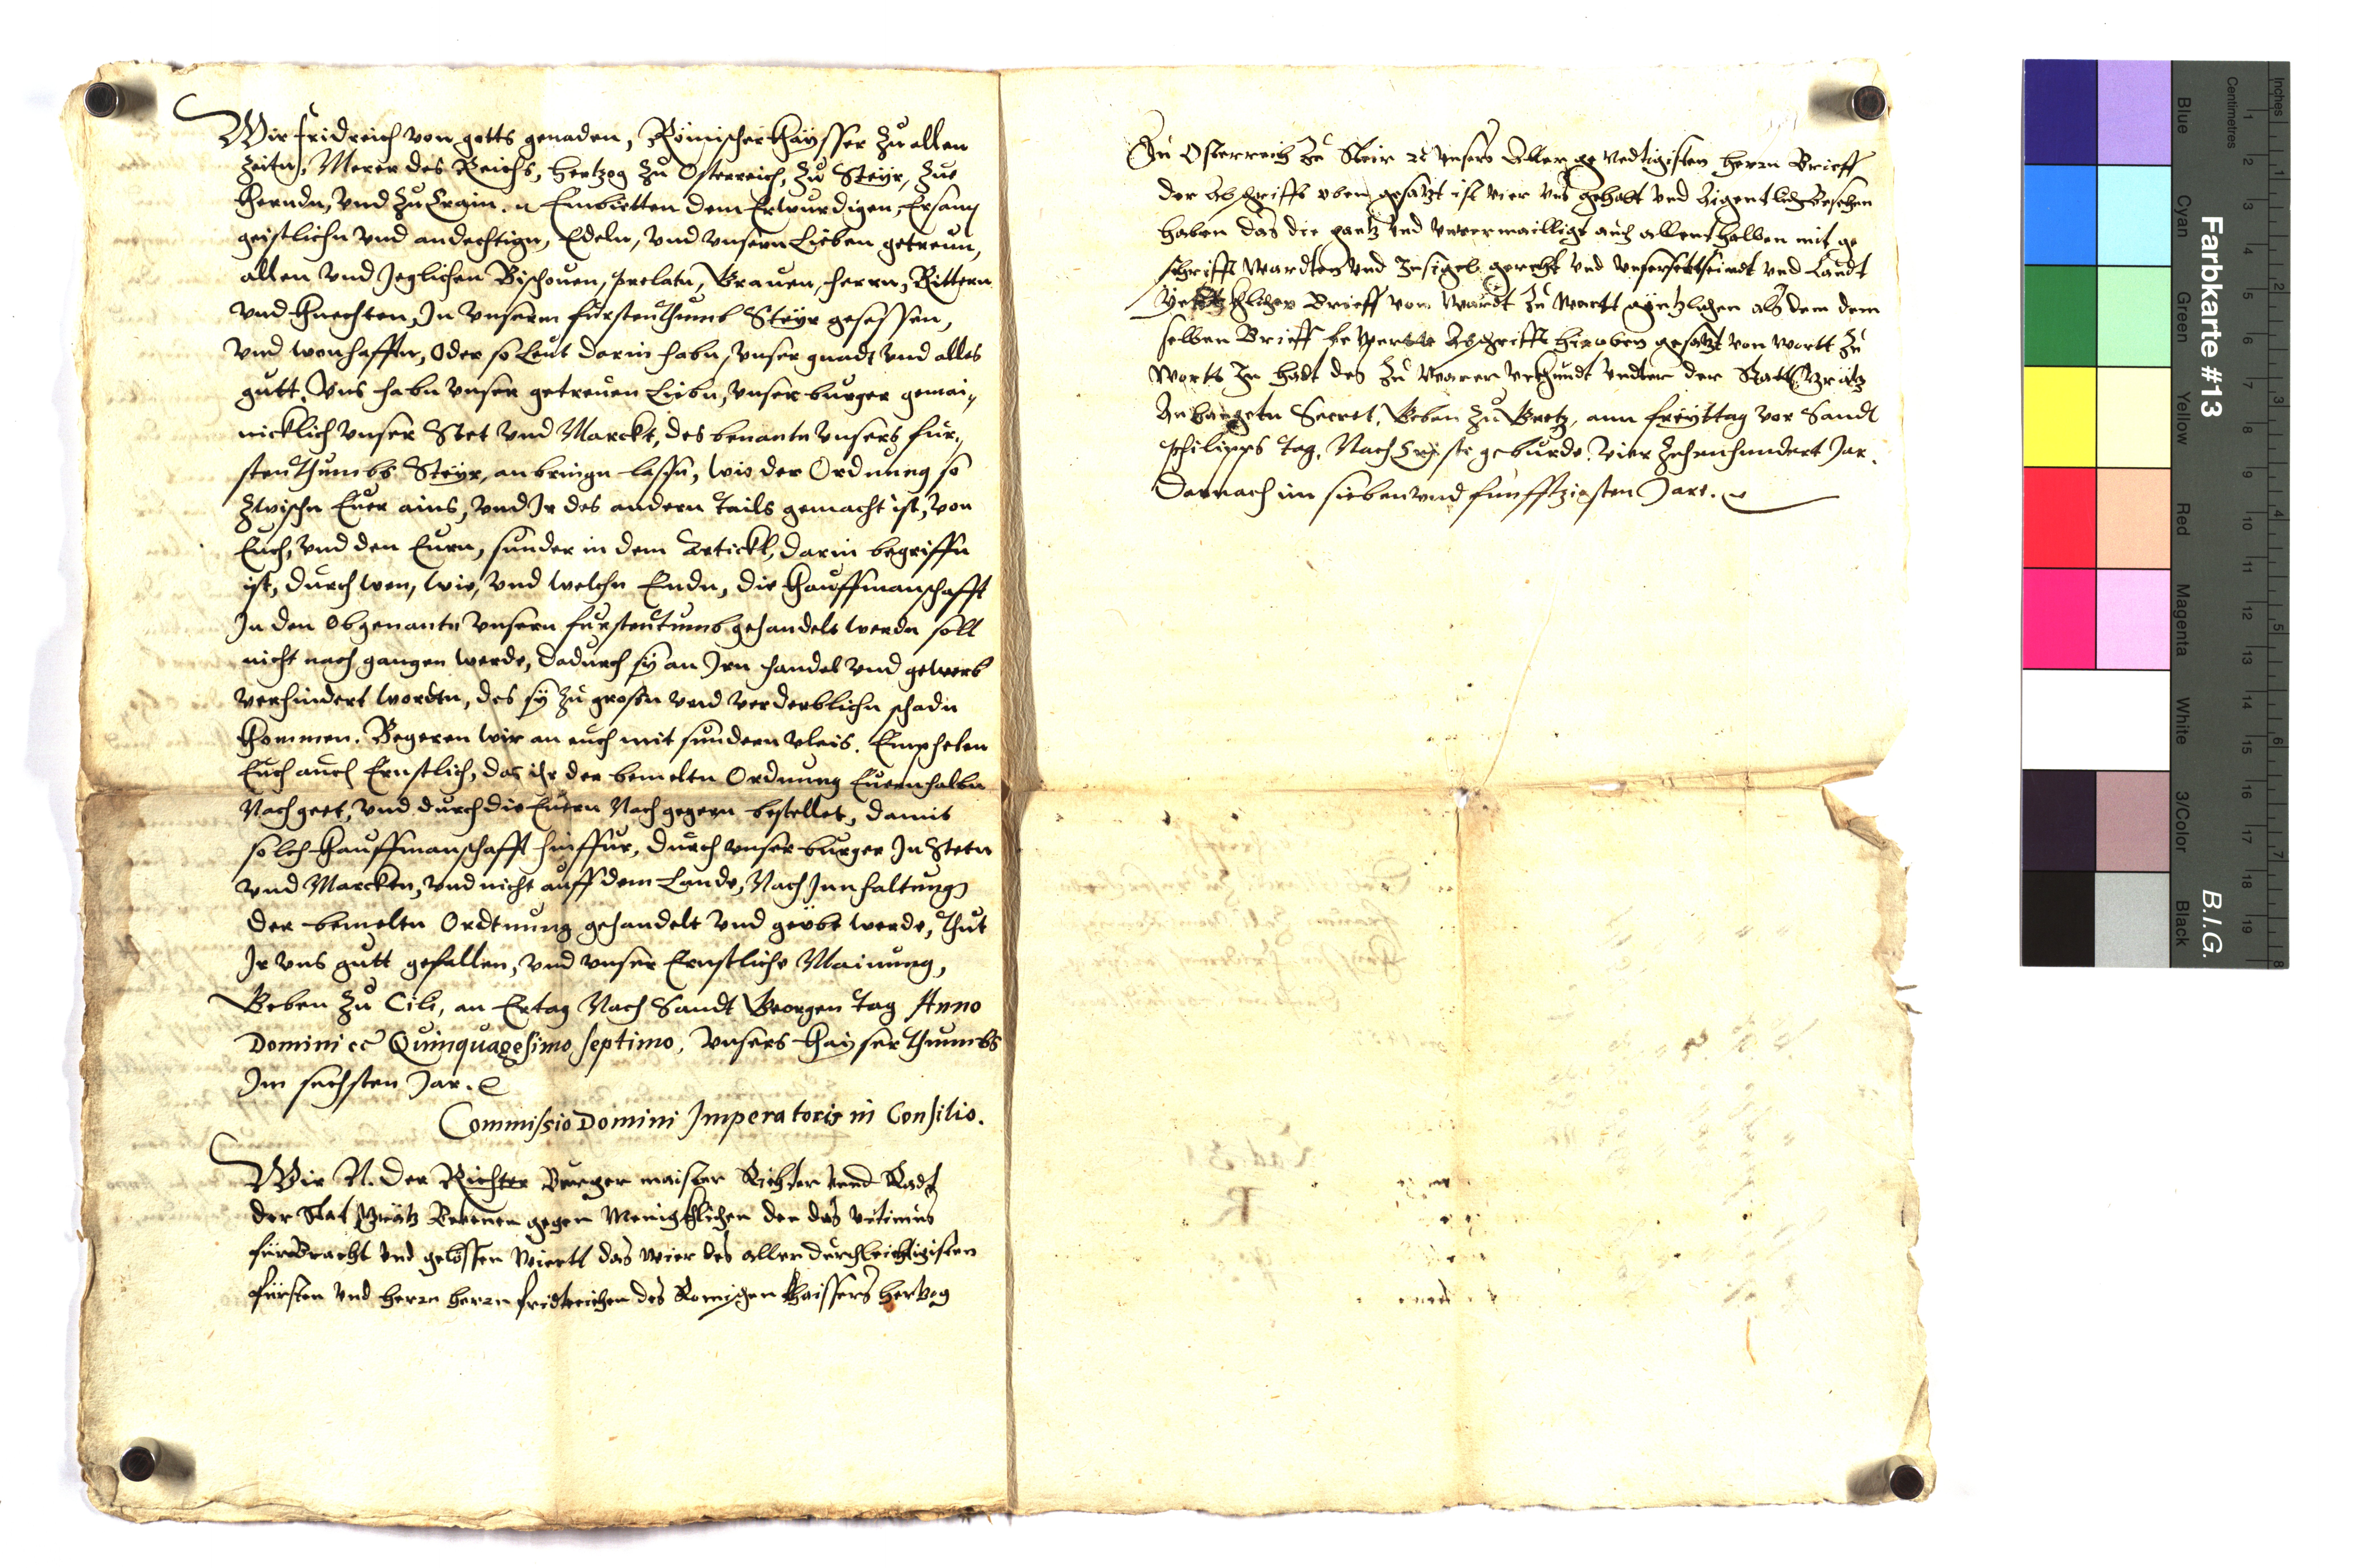 Wir Fridreich von gotts genaden, Römischer Khaysser zu allen
Zeitn, Merer des Reichs, Hertzog zu Osterreich, zu Steyr, zue
Kherndn, vnd zu Crain. Embietten dem Erwurdigen, Ersam
geistlichn vnd andechtign, Edeln, vnd vnsern Lieben getreun,
allen vnd Jeglichen Bischouen, prelatn, Grauen, herrn, Rittern
vnd Knechten, In vnserm furstenthumb Steyr gesessen,
vnd wonhafftn, Oder so Leut darin habn, vnser gnadt vnd alles
gutt. Vns habn vnser getreuen Liebn, vnser burger gemai,,
nicklich vnser Stet vnd Marckt, des benantn vnsers fur,,
stenthumbs Steyr, anbringn lassn, wie der Ordnung so
zwischn Euer ains, vnd Ir des andern tails gemacht ist, von
Euch, vnd den Eurn, sunder in dem Artickl, darin begriffn
ist, durch wen, wie, vnd welchn Endn, die Khauffmanschafft
In den Obgenantn vnsern furstentumb gehandelt werdn soll
nicht nach gangen werde, dadurch sy an Irn handel vnd gewerb
verhindert wordtn, des sy zu grossn vnd verderblichn schadn
Khommen. Begeren wir an euch mit sundern vleis. Emphelen
Euch auch Ernstlich, das ihr der bemeltn Ordnung Euernhalbn
Nach geet, vnd durch die Euern Nach gegen bestellet, damit
solch Khauffmanschafft hinffur, durch vnser burger In Stetn
vnd Marckten, vnd nicht auff dem Lande, Nach Innhaltung
der bemeltn Ordtnung gehandelt vnd geübt werde, Thut
Ir vns gutt gefallen, vnd vnser Ernstliche Mainung,
Geben zu Cili, an Ertag Nach Sandt Georgen tag Anno
Domini etc Quinquagesimo septimo, vnsers Khayserthumbs
Im sechsten Jar.
Commissio Domini Imperatoris in Consilio.
Wir N. der Richter Burger maister Richter vnnd Radt
der Stat Grätz Bekenen gegen Menigkhlichen den das vitimus
fürbracht vnd gelössen Wiertt das Wier des aller durchleichtigisten
fürsten vnd herrn herrn fridtreichen des Romischen Khaissers hertzog
Zu Osterreich Zu Steir etc vnsers Aller genedtigisten herrn Brieff
der Abschrifft oben gesatzt ist vier vns gehabt vnd Aigentlich Besehen
haben das die gantz vnd vnvermailligt auch allenthalben mit ge
schrifft Wardten vnd Insigel gerecht vnd
Brieff von Wardt zu Wartt gentzlichen als dem dem
selben Brieff Abschrifft hieoben gesatzt von Wortt zu
Wortt In hadt des zu Warer vrkhundt vndter der Statt Grätz
Anhangetn Secret, Geben zu Gretz, ann freyttag vor Sandt
Philipps tag, Nach Cristi geburde, vier zehenhundert Jar,
Darnach im sieben vnd funfftzigsten Jare.
Farbkarte #13
B.I.G.
Inches
Centimetres
Blue
Cyan
Green
Yellow
Red
Magenta
White
3/Color
Black